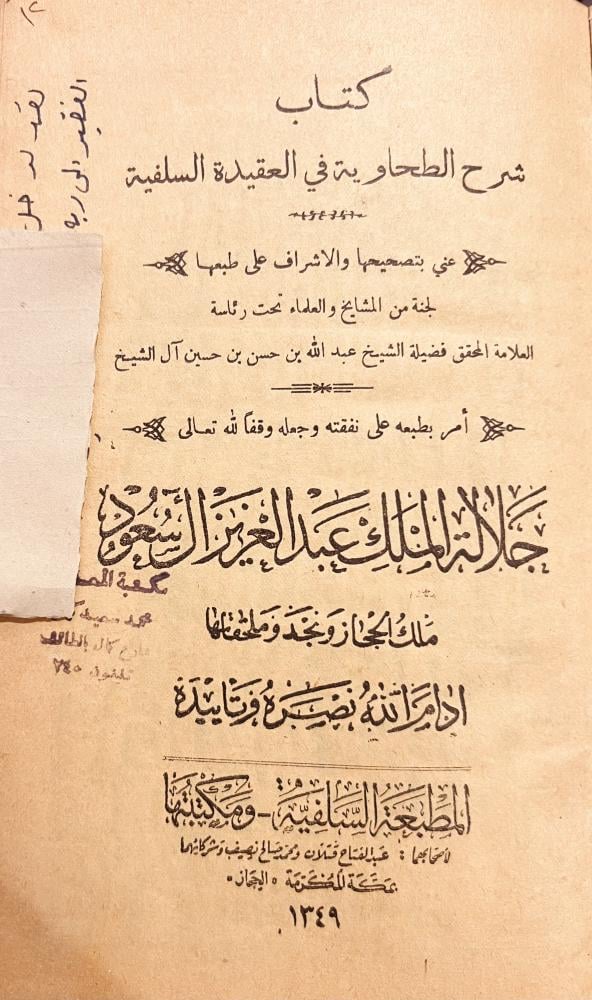 كتاب
شرح الطحاوية في العقيدة السلفية
عني بتصحيحها والاشراف على طبعها
لجنة من المشايخ والعلماء تحت رئاسة
العلامة المحقق فضيلة الشيخ عبد الله بن حسن بن حسين آل الشيخ
أمر بطبعه على نفقته وجعله وقفاً لله تعالى
جَلالة المَلِك عَبد العَزيز آل سُعُود
مَلكُ الحجَاز وَنجدَ وَملحقَاتها
ادَامَ اللهُ نَصْرَهُ وَتَاييدَهُ
المَطبَعَة السَّلَفيَّة - وَمَكتبَتهَا
لأصحابهما : عبد الفتاح قتلان ومحمد صالح نصيف وشركائهما
بمكَّة المُكَرّمة «الحجاز»
١٣٤٩
الفقير الى ربه
مكتبة
محمد سعيد
شارع كمال بالطائف
تليفون ٧٤٥